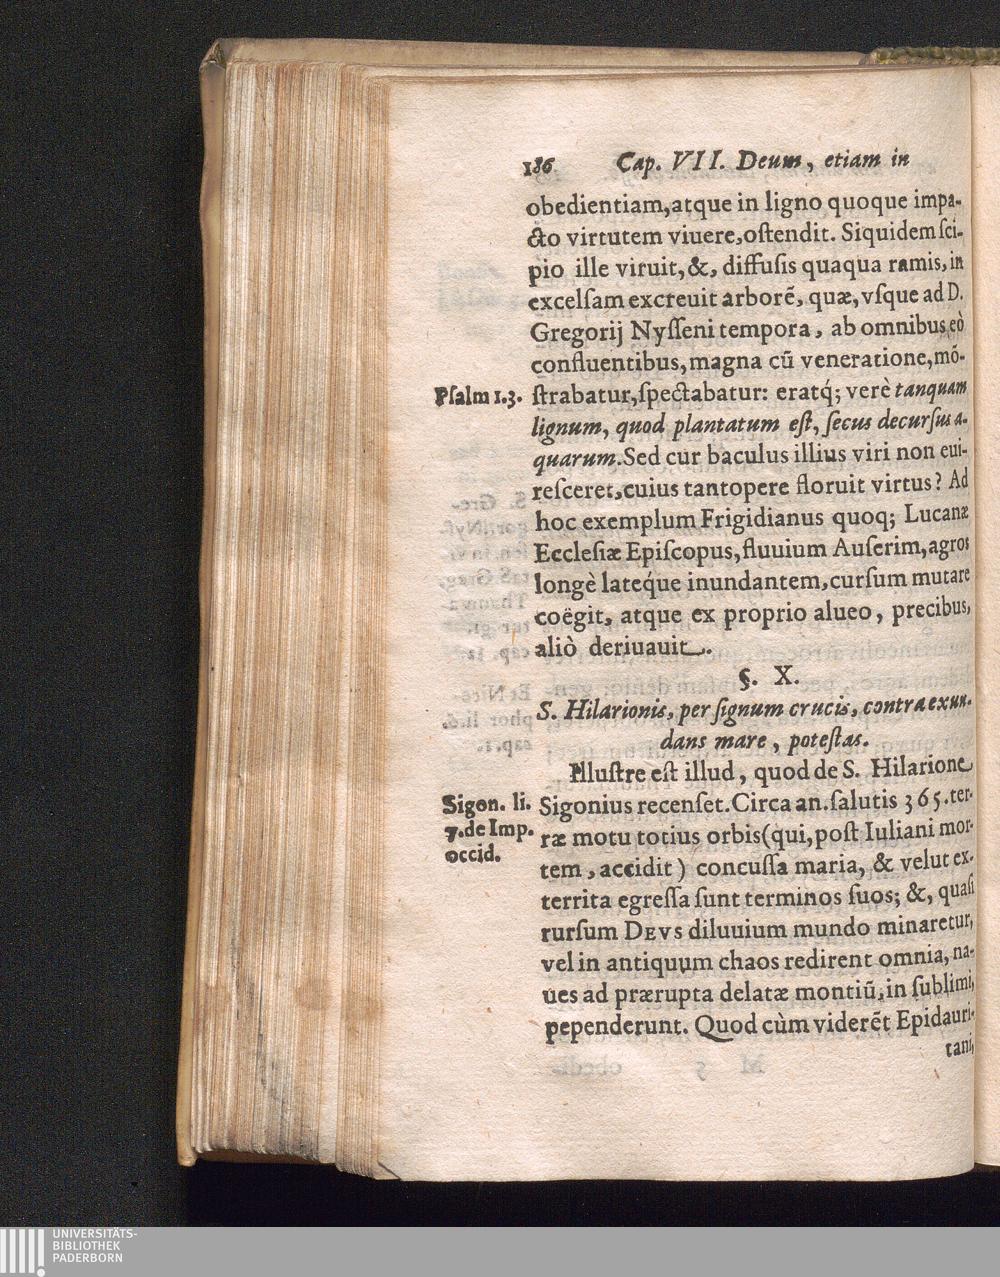 186 Cap. VII. Deum, etiam in
obedientiam, atque in ligno quoque impa-
cto virtutem viuere, oſtendit. Siquidem ſci-
pio ille viruit, &, diffuſis quaqua ramis, in
excelſam excreuit arborẽ, quæ, vſque ad D.
Gregorij Nyſſeni tempora, ab omnibus eò
confluentibus, magna cũ veneratione, mõ-
Pſalm 1.3. ſtrabatur, ſpectabatur: eratq́; verè tanquam
lignum, quod plantatum eſt, ſecus decurſus a-
quarum. Sed cur baculus illius viri non eui-
reſceret, cuius tantopere floruit virtus? Ad
hoc exemplum Frigidianus quoq; Lucanæ
Eccleſiæ Epiſcopus, fluuium Auſerim, agros
longè latéque inundantem, curſum mutare
coëgit, atque ex proprio alueo, precibus,
aliò deriuauit.
§. X.
S. Hilarionis, per ſignum crucis, contra exun-
dans mare, poteſtas.
Illuſtre eſt illud, quod de S. Hilarione
Sigon. li.
7. de Imp.
occid.
Sigonius recenſet. Circa an. ſalutis 365. ter-
ræ motu totius orbis (qui, poſt Iuliani mor-
tem, accidit) concuſſa maria, & velut ex-
territa egreſſa ſunt terminos ſuos; &, quaſi
rurſum DEVS diluuium mundo minaretur,
vel in antiquum chaos redirent omnia, na-
ues ad prærupta delatæ montiũ, in ſublimi,
pependerunt. Quod cùm viderẽt Epidauri-
tani,
UNIVERSITÄTS-
BIBLIOTHEK
PADERBORN